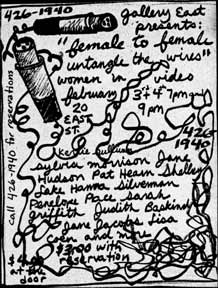 426-1940
gallery East
presents:
"female to female
untangle the wires"
women in video
february 3 & 4 7pm &
9 pm
20
EAST
ST.
426
1940
call 426-1940 for reservations
sylvia morrison Jane
Hudson Pat Hearn Shelley
Lake Hanna Silverman
Penelope Place Sarah
griffith Judith
Jane Jacobs Lisa
and more
$3.00 with
reservation
at the
door